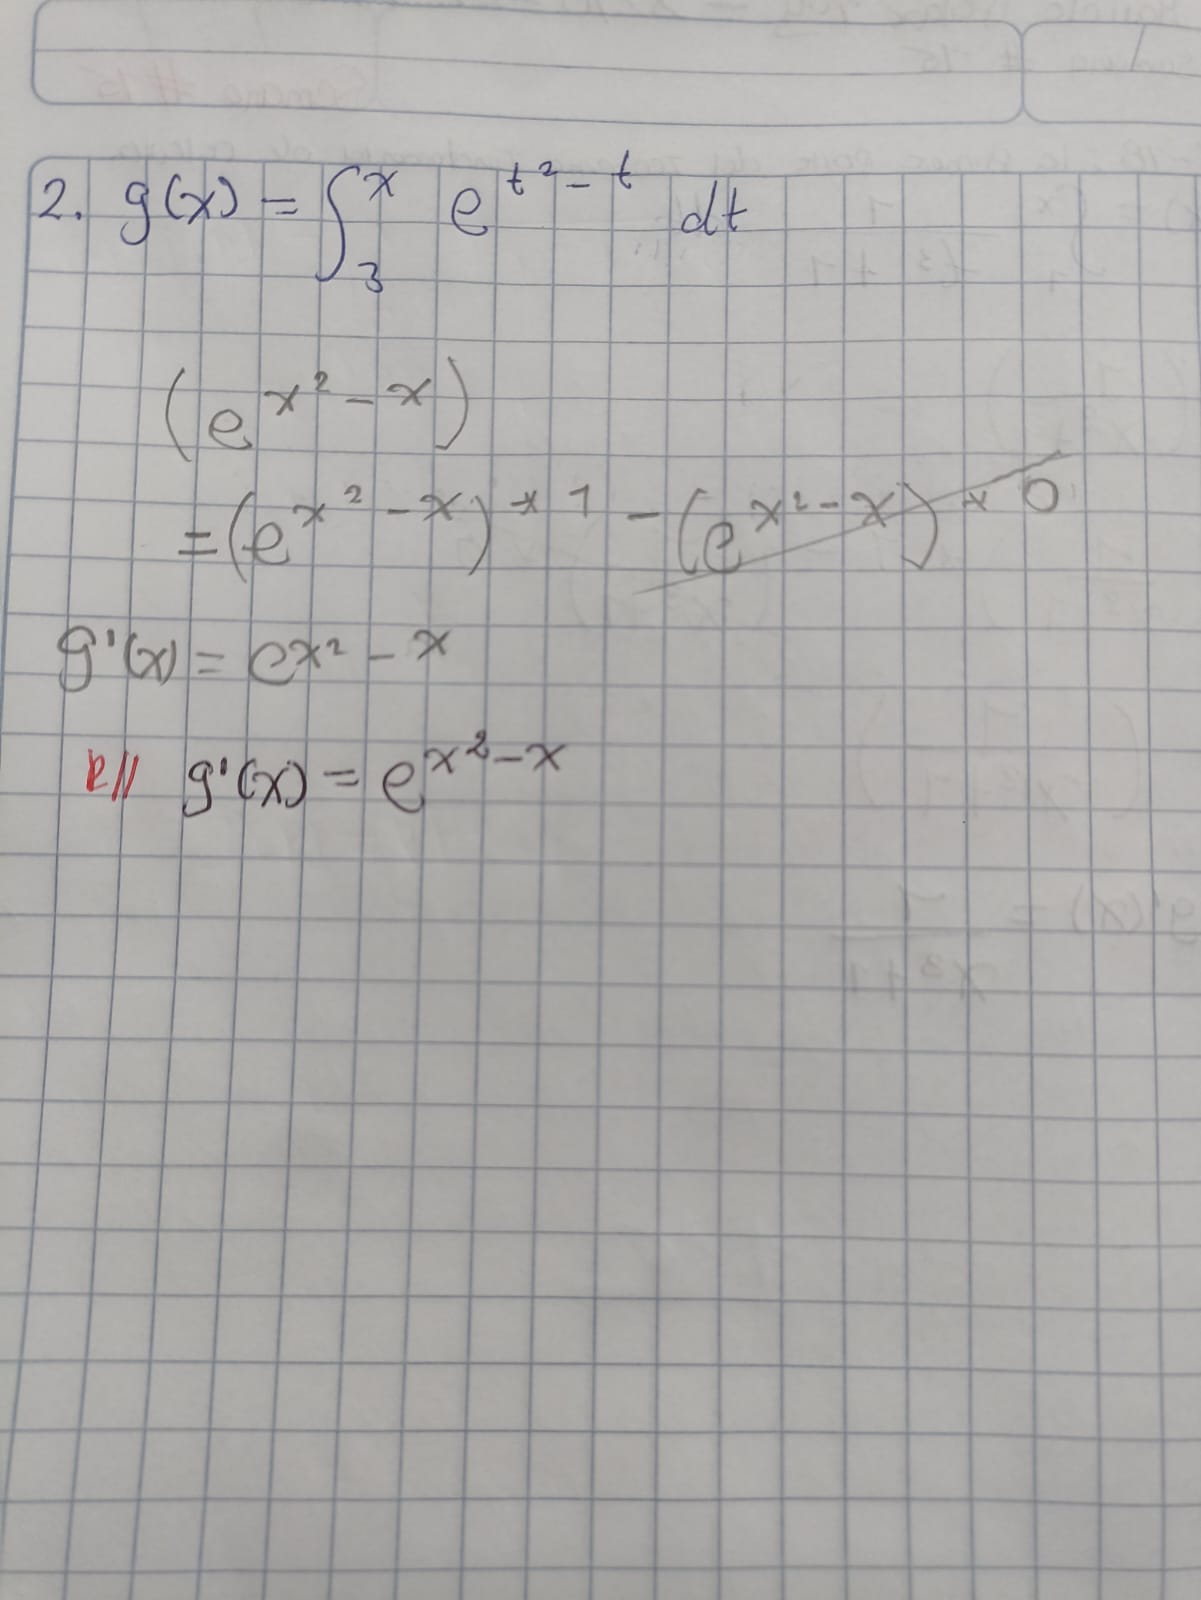 2. g(x) = ∫₃ˣ e^(t²-t) dt
(e^(x²-x))
= (e^(x²-x)) * 1 - (e^(x²-x)) * 0
g'(x) = ex² - x
R// g'(x) = e^(x²-x)